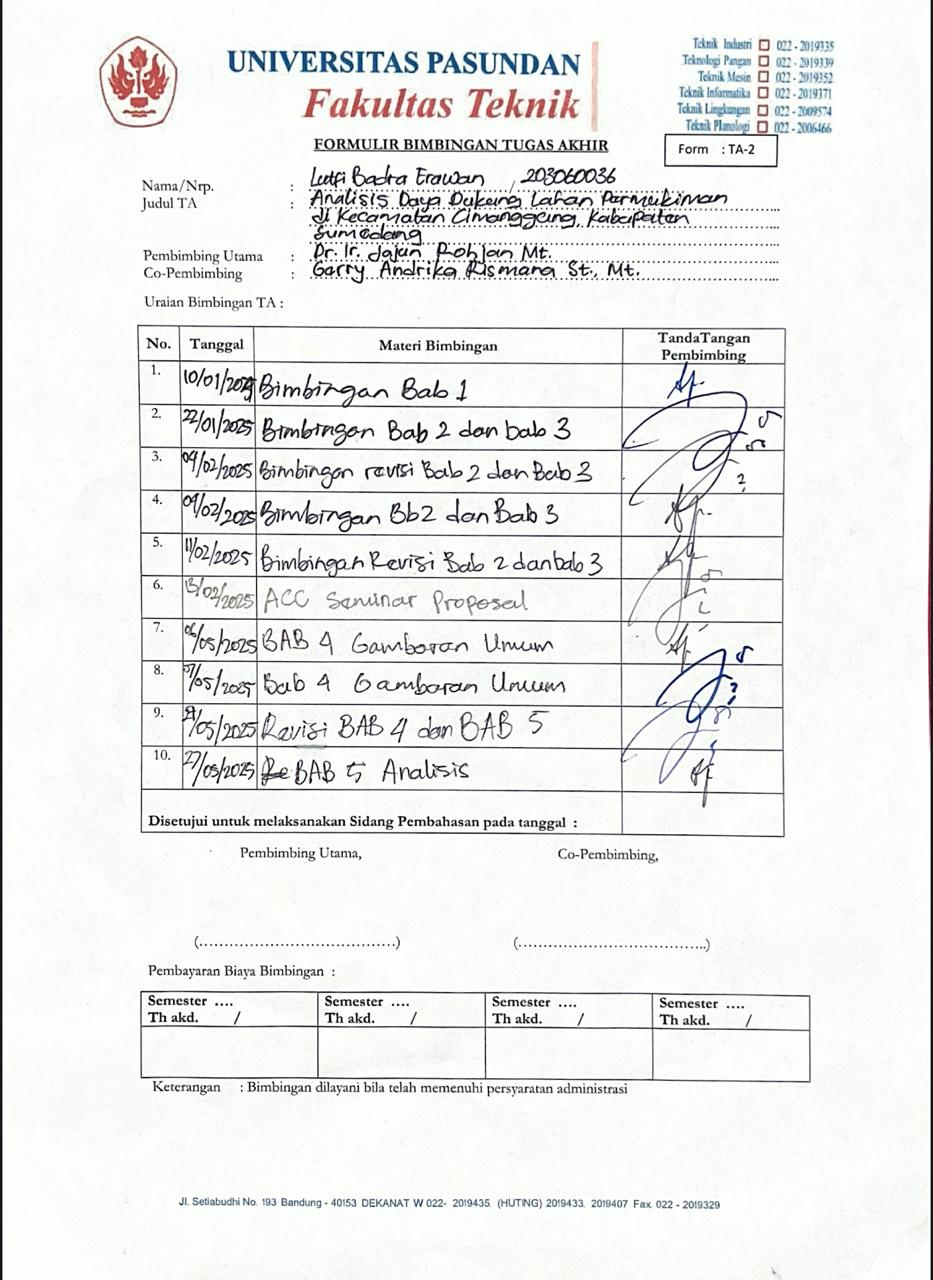 UNIVERSITAS PASUNDAN
Fakultas Teknik
Teknik Industri 022 - 2019335
Teknologi Pangan 022 - 2019339
Teknik Mesin 022 - 2019352
Teknik Informatika 022 - 2019371
Teknik Lingkungan 022 - 2009574
Teknik Planologi 022 - 2006466
FORMULIR BIMBINGAN TUGAS AKHIR
Form : TA-2
Nama/Nrp. : Lutfi Badra Erawan , 203060036
Judul TA : Analisis Daya Dukung Lahan Permukiman
di Kecamatan Cimanggung, Kabupaten
Sumedang
Pembimbing Utama : Dr. Ir. Jajan Rohjan Mt.
Co-Pembimbing : Garry Andrika Rismana St., Mt.
Uraian Bimbingan TA :
No. Tanggal Materi Bimbingan TandaTangan Pembimbing
1. 10/01/2025 Bimbingan Bab 1
2. 22/01/2025 Bimbingan Bab 2 dan bab 3
3. 04/02/2025 Bimbingan revisi Bab 2 dan Bab 3
4. 04/02/2025 Bimbingan Bb2 dan Bab 3
5. 11/02/2025 Bimbingan Revisi Bab 2 dan bab 3
6. 13/02/2025 ACC Seminar Proposal
7. 06/05/2025 BAB 4 Gambaran Umum
8. /05/2025 Bab 4 Gambaran Umum
9. /05/2025 Revisi BAB 4 dan BAB 5
10. 27/05/2025 BAB 5 Analisis
Disetujui untuk melaksanakan Sidang Pembahasan pada tanggal :
Pembimbing Utama, Co-Pembimbing,
(.......................................) (.......................................)
Pembayaran Biaya Bimbingan :
Semester .... Semester .... Semester .... Semester ....
Th akd. / Th akd. / Th akd. / Th akd. /
Keterangan : Bimbingan dilayani bila telah memenuhi persyaratan administrasi
Jl. Setiabudhi No. 193 Bandung - 40153 DEKANAT W 022- 2019435, (HUTING) 2019433, 2019407 Fax. 022 - 2019329